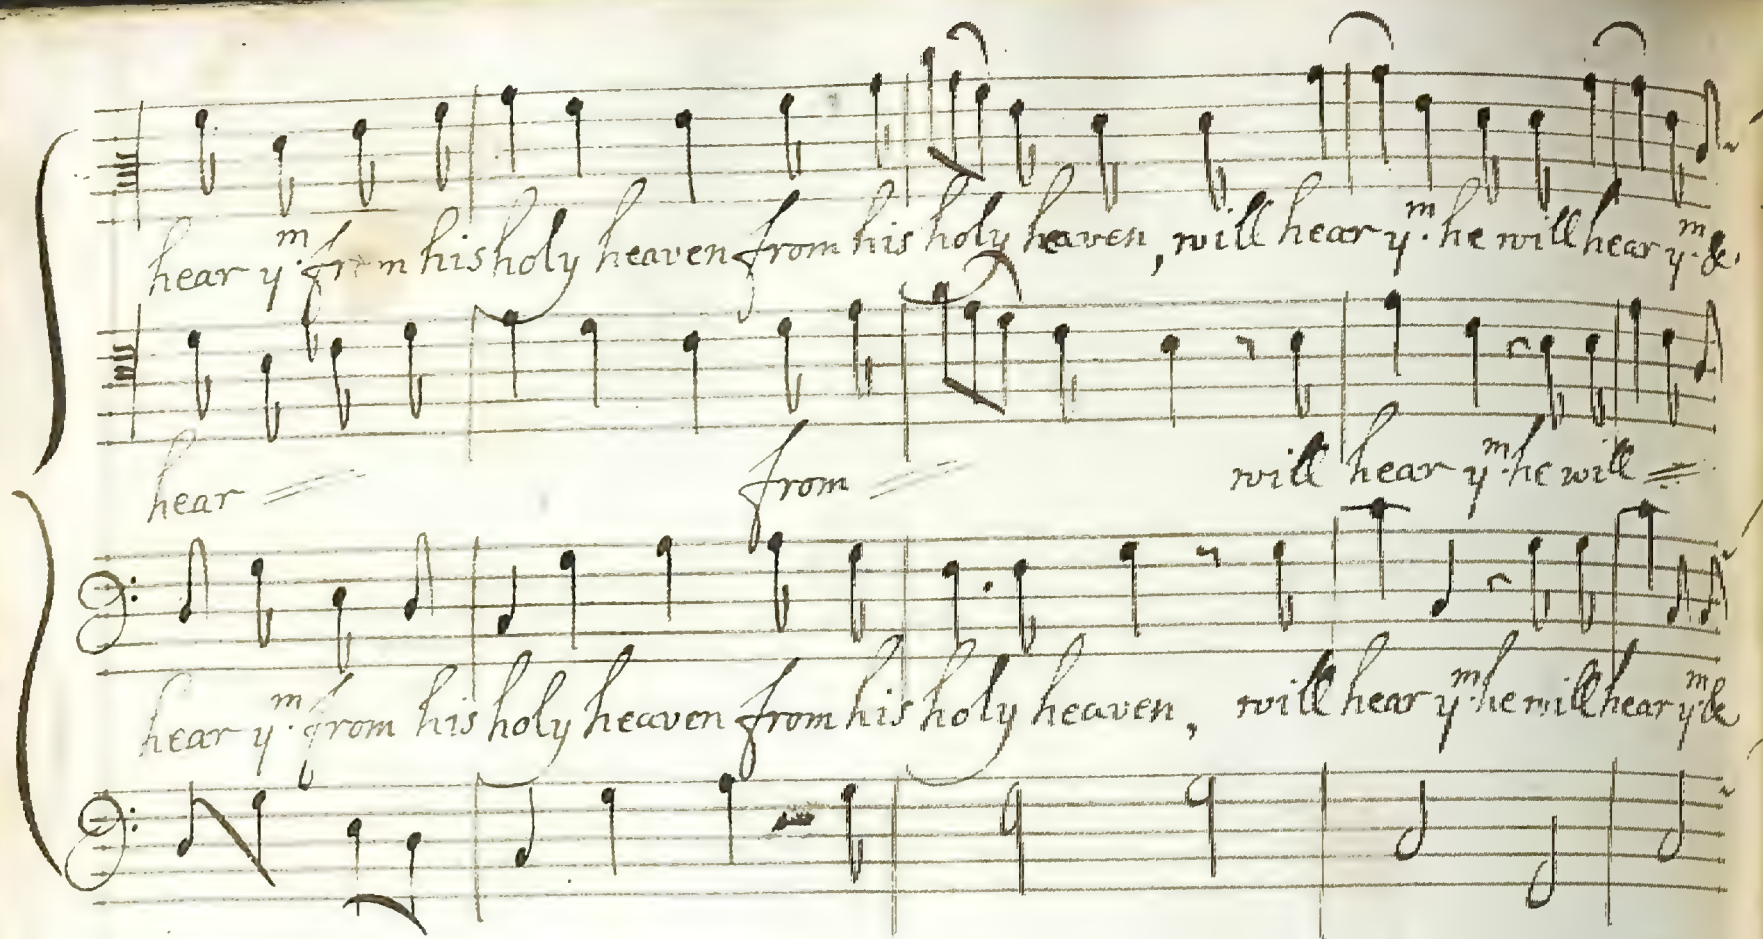 hear y.ᵐ from his holy heaven from his holy heaven, will hear y.ᵐ he will hear y.ᵐ &
hear = from = will hear y.ᵐ he will =
hear y.ᵐ from his holy heaven from his holy heaven, will hear y.ᵐ he will hear y.ᵐ &